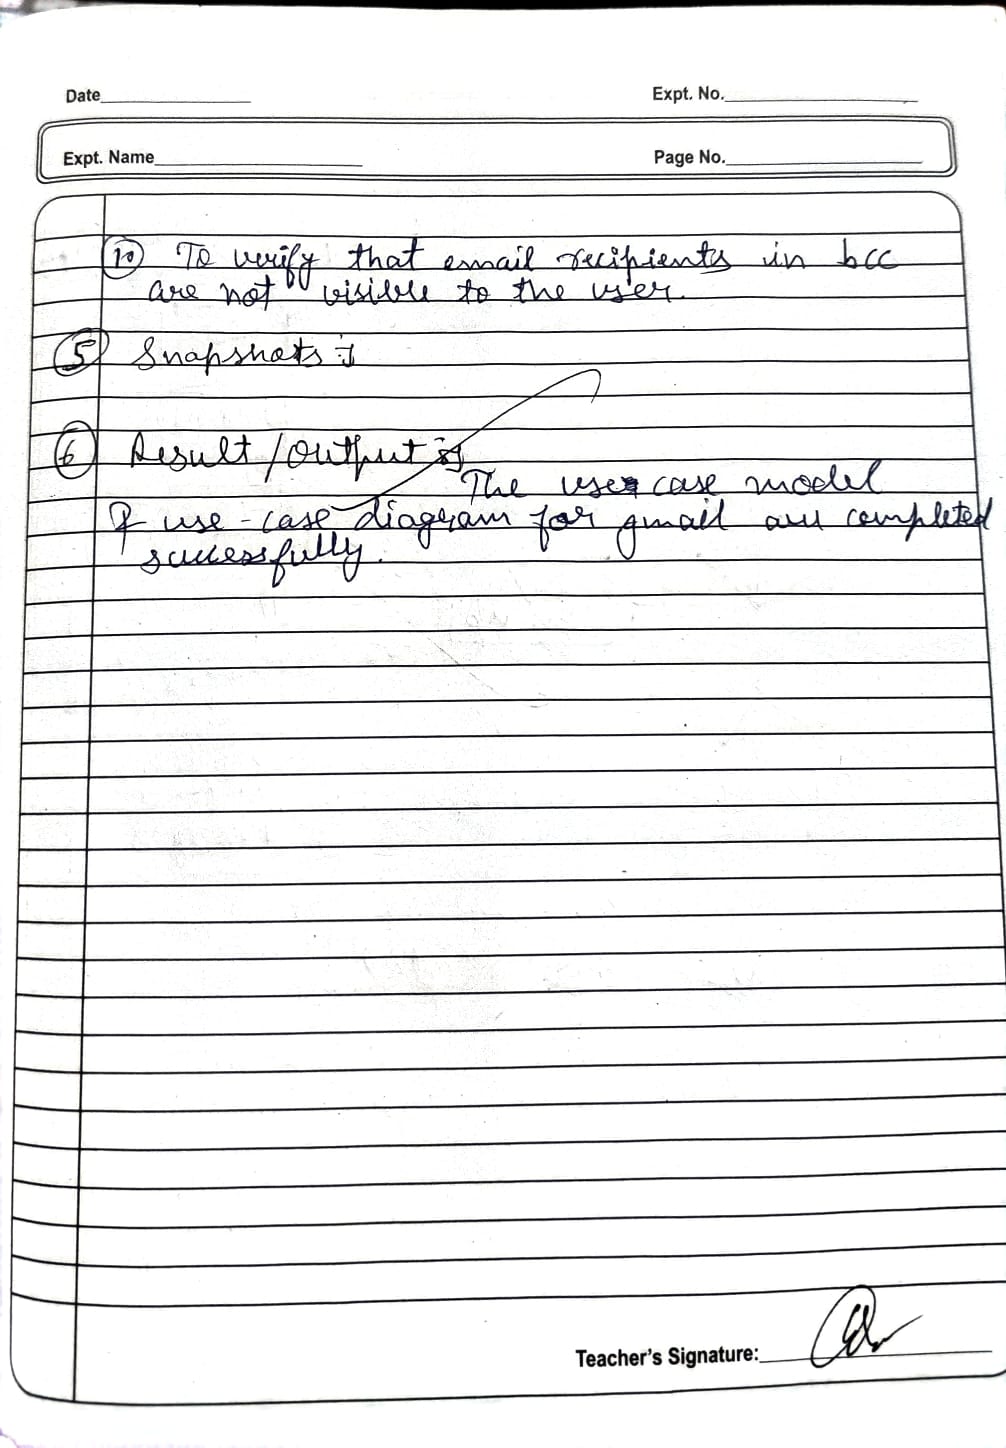 Date
Expt. No.
Expt. Name
Page No.
10 To verify that email recipients in bcc
are not visible to the user.
5 Snapshots :-
6 Result / Output :-
The use case model
& use-case diagram for gmail are completed
successfully.
Teacher's Signature: